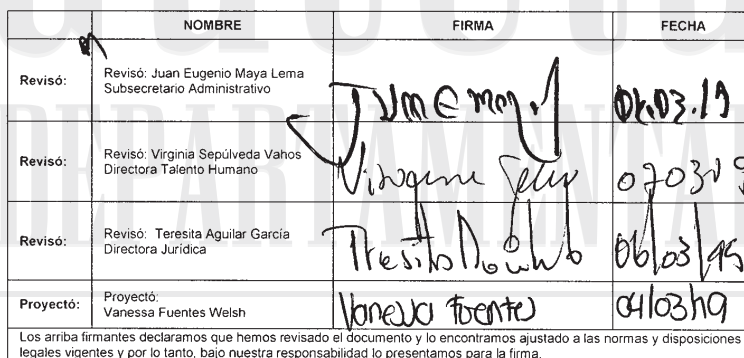 NOMBRE FIRMA FECHA
Revisó: Revisó: Juan Eugenio Maya Lema
Subsecretario Administrativo
Revisó: Revisó: Virginia Sepúlveda Vahos
Directora Talento Humano
Revisó: Revisó: Teresita Aguilar García
Directora Jurídica
06/03/19
Proyectó: Proyectó:
Vanessa Fuentes Welsh Vanessa Fuentes 04/03/19
Los arriba firmantes declaramos que hemos revisado el documento y lo encontramos ajustado a las normas y disposiciones
legales vigentes y por lo tanto, bajo nuestra responsabilidad lo presentamos para la firma.
DEPARTAMENTAL